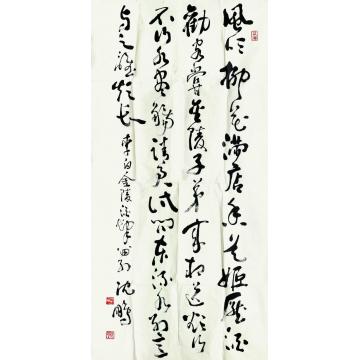 風吹柳花滿店香吳姬壓酒
勸客嘗金陵子弟來相送欲行
不行各盡觴請君試問東流水別意
与之誰短長 李白金陵酒肆留別 沈鵬